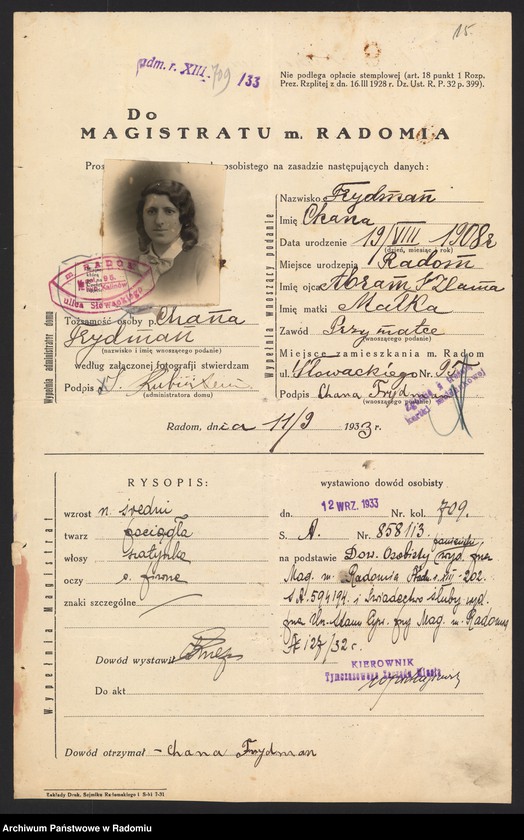 15.
adm. r. XIII. 709 /33
Nie podlega opłacie stemplowej (art. 18 punkt 1 Rozp.
Prez. Rzplitej z dn. 16.III 1928 r. Dz. Ust. R. P. 32 p. 399).
Do
MAGISTRATU m. RADOMIA
osobistego na zasadzie następujących danych:
Wypełnia administrator domu
m. RADOM
ulica Słowackiego
Tożsamość osoby p. Chana
Frydman
(nazwisko i imię wnoszącego podanie)
według załączonej fotografji stwierdzam
Podpis
(administratora domu)
Wypełnia wnoszący podanie
Nazwisko Frydman
Imię Chana
Data urodzenie 19/VIII 1908 r
(dzień, miesiąc i rok)
Miejsce urodzenia Radom
Imię ojca Abram Szlama
Imię matki Malka
Zawód Przy matce
(wnoszącego podanie)
Miejsce zamieszkania m. Radom
ul. Słowackiego Nr. 97
Podpis Chana Frydman
(wnoszącego podanie)
Radom, dnia 11/9 1933 r.
Wypełnia Magistrat
RYSOPIS:
wzrost n. średni
twarz pociągła
włosy szatynka
oczy c. piwne
znaki szczególne
Dowód wystawił
Do akt
wystawiono dowód osobisty
dn. 12 WRZ. 1933 Nr. kol. 709.
S. A. Nr. 858113.
na podstawie Dow. Osobisty wyd. prze
Mag. m. Radomia Adm. r. XIII-202.
S. A. 594194. i Świadectwo ślubu wyd.
prze Urz. Stanu Cyw. przy Mag. m. Radomiu
A 127/32 r.
KIEROWNIK
Tymczasowego Zarządu Miasta
Dowód otrzymał - Chana Frydman
Zakłady Druk. Sejmiku Radomskiego
Archiwum Państwowe w Radomiu